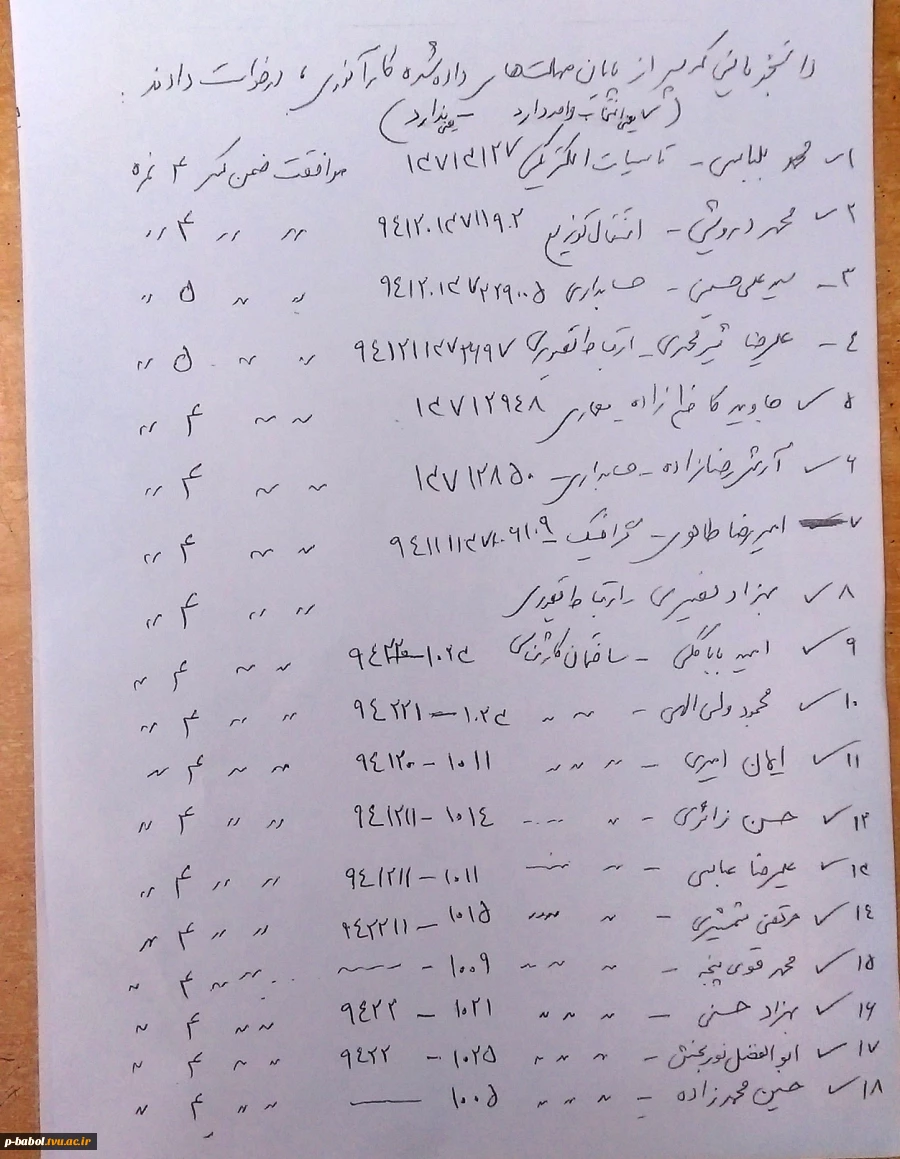 دانشجویانی که پس از پایان مهلت‌های داده شده کارآموزی، درخواست دادند.
(✓ یعنی انتخاب واحد دارد - یعنی ندارد)
۱- محمد بلبلی - تاسیسات الکتریکی موافقت ضمن کسر ۴ نمره
۲ ✓ محمد درویشی - انتقال و توزیع " " ۴ "
۳- سید علی حسینی - حسابداری " " ۵ "
۴- علیرضا شیرمحمدی - ارتباط تصویری " " ۵ "
۵ ✓ جاوید کاظم زاده معماری ۱۳۷۱۲۹۴۸ " " ۴ "
۶ ✓ آرش رضازاده - حسابداری - ۱۳۷۱۲۸۵۰ " " ۴ "
۷ امیررضا طاهری - گرافیک " " ۴ "
۸ ✓ بهزاد نصیری - ارتباط تصویری " " ۴ "
۹ ✓ امید باباگلی - ساختمان کارشناسی " " ۴ "
۱۰ ✓ محمود ولی الهی - " " ۹۴۲۲۱ - ۱۰۲۳ " " ۴ "
۱۱ ✓ ایمان امیری - " " " ۹۴۱۲۰ - ۱۰۱۱ " " ۴ "
۱۲ ✓ حسن زائری - " " ۹۴۱۲۱۱ - ۱۰۱۴ " " ۴ "
۱۳ ✓ علیرضا عباسی - " " ۹۴۱۲۱۱ - ۱۰۱۱ " " ۴ "
۱۴ ✓ مرتضی شمشیری - " " " ۹۴۲۲۱۱ - ۱۰۱۵ " " ۴ "
۱۵ ✓ محمد قوی پنجه - " " " ۱۰۰۹ - " " ۴ "
۱۶ ✓ بهزاد حسنی - " " " ۹۴۲۲ - ۱۰۲۱ " " ۴ "
۱۷ ✓ ابوالفضل نوربخش - " " " ۹۴۲۲ - ۱۰۲۵ " " ۴ "
۱۸ ✓ حسین محمدزاده - " " " ۱۰۰۵ - " " ۴ "
p-babol.tvu.ac.ir